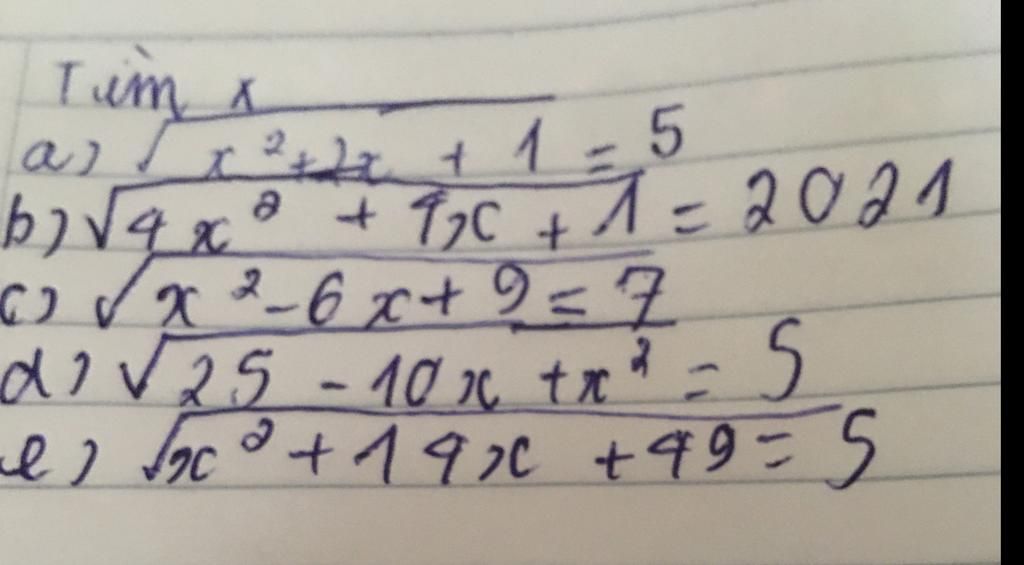 Tìm x
a) √(x² + 2x + 1) = 5
b) √(4x² + 4x + 1) = 2021
c) √(x² - 6x + 9) = 7
d) √(25 - 10x + x²) = 5
e) √(x² + 14x + 49) = 5